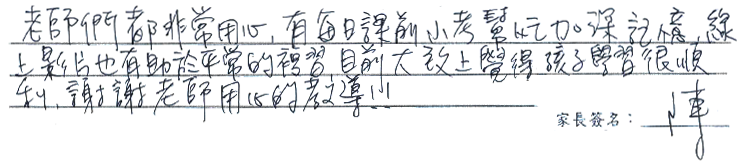 老師們都非常用心,有每日課前小考幫忙加深記憶,線
上影片也有助於平常的複習,目前大致上覺得孩子學習很順
利,謝謝老師用心的教導!!!
家長簽名：陳